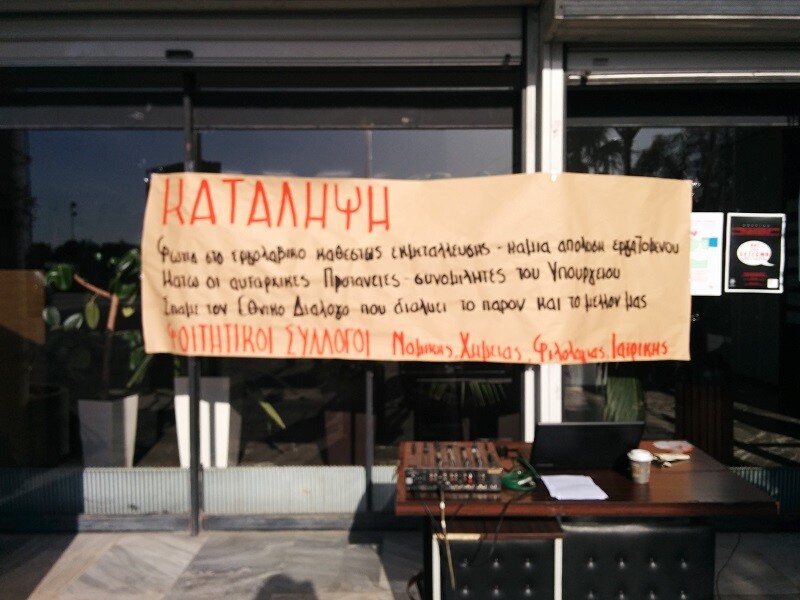 ΚΑΤΑΛΗΨΗ
Φωτια στο εργολαβικο καθεστως εκμεταλλευσης - καμια απολυση εργαζομενου
Κατω οι αυταρχικες Πρυτανειες - συνομιλητες του Υπουργειου
Σπαμε τον Εθνικο Διαλογο που διαλυει το παρον και το μελλον μας
ΦΟΙΤΗΤΙΚΟΙ ΣΥΛΛΟΓΟΙ Νομικης, Χημειας, Φιλολογιας, Ιατρικης